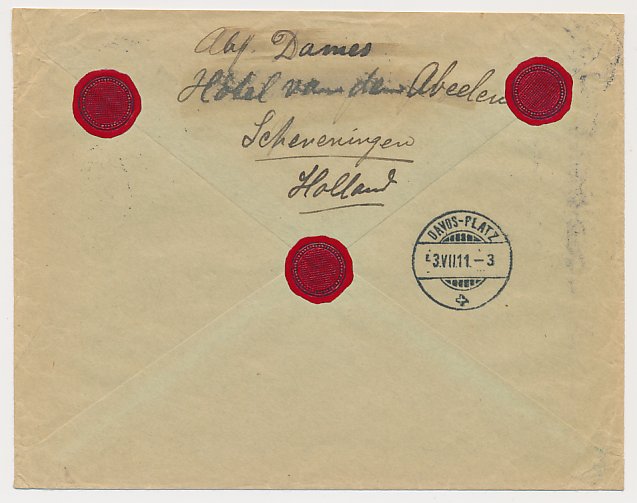 Abf. Dames
Hôtel van den Abeelen
Scheveningen
Holland
DAVOS-PLATZ
3.VII.11.-3